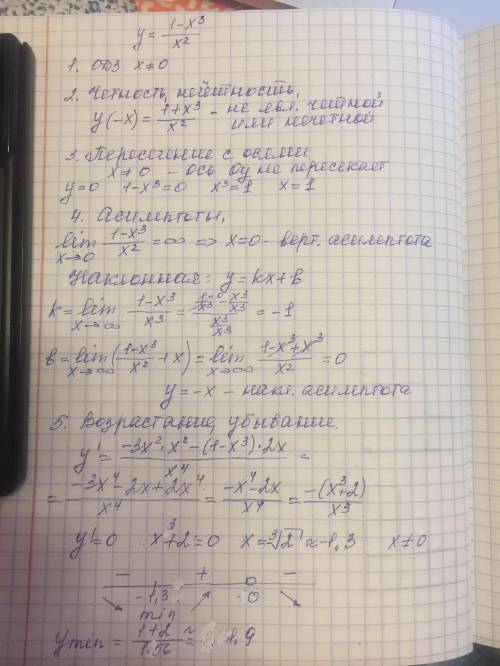 y = (1-x³)/x²
1. ОДЗ x≠0
2. Четность, нечетность,
y(-x) = (1+x³)/x² - не явл. четной
или нечетной
3. Пересечение с осями
x≠0 - ось оу не пересекает
y=0 1-x³=0 x³=1 x=1
4. Асимптоты,
lim x→0 (1-x³)/x² = ∞ => x=0 - верт. асимптота
Наклонная: y=kx+b
k = lim x→∞ (1-x³)/x³ = (1/x³ - x³/x³)/(x³/x³) = -1
b = lim x→∞ ((1-x³)/x² + x) = lim x→∞ (1-x³+x³)/x² = 0
y=-x - накл. асимптота
5. Возрастание, убывание.
y' = (-3x²·x² - (1-x³)·2x)/x⁴ =
= (-3x⁴-2x+2x⁴)/x⁴ = (-x⁴-2x)/x⁴ = -(x³+2)/x³
y'=0 x³+2=0 x=-∛2 ≈ -1,3 x≠0
- + -
-1,3 0
min
ymin = (1+2)/1,56 ≈ 1,9